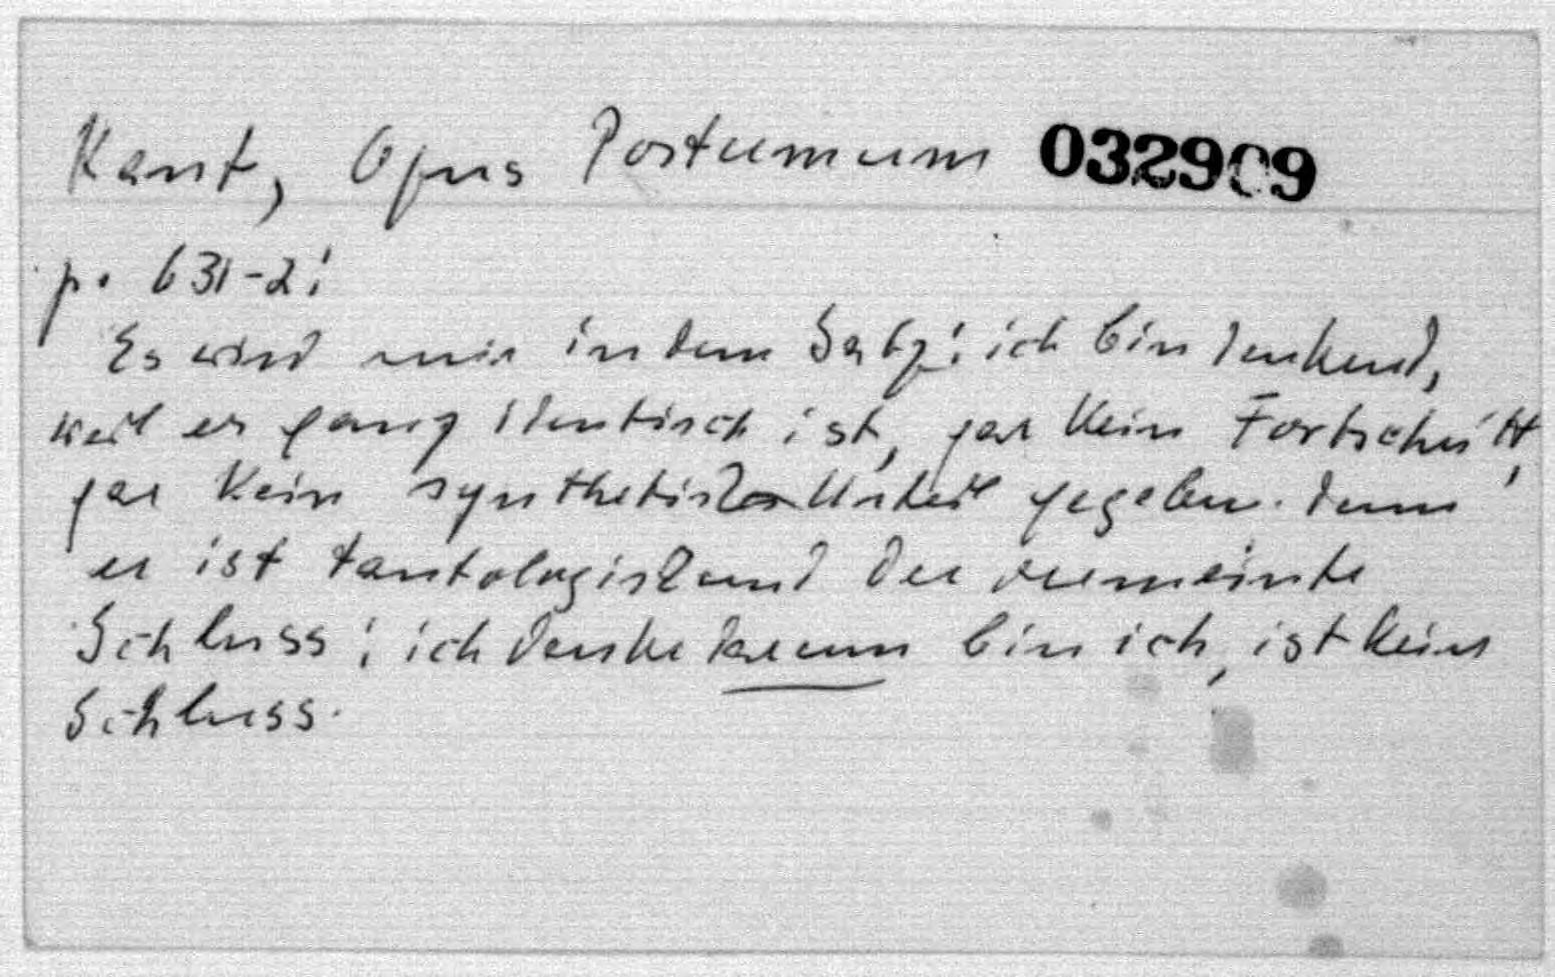 Kant, Opus Postumum 032909
p. 631-2:
Es wird mir in dem Satz: ich bin denkend,
weil er ganz identisch ist, gar kein Fortschritt,
gar kein synthetisches Urteil gegeben. denn
er ist tautologisch und der vermeinte
Schluss: ich denke darum bin ich, ist kein
Schluss.